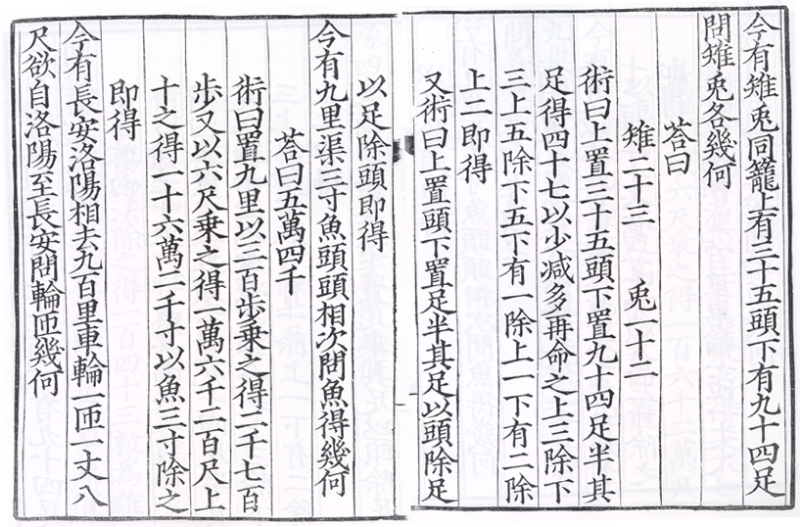 今有雉兎同籠上有三十五頭下有九十四足
問雉兎各幾何
荅曰
雉二十三　兎一十二
術曰上置三十五頭下置九十四足半其
足得四十七以少减多再命之上三除下
三上五除下五下有一除上一下有二除
上二即得
又術曰上置頭下置足半其足以頭除足
以足除頭即得
今有九里渠三寸魚頭頭相次問魚得幾何
荅曰五萬四千
術曰置九里以三百步乗之得二千七百
步又以六尺乗之得一萬六千二百尺上
十之得一十六萬二千寸以魚三寸除之
即得
今有長安洛陽相去九百里車輪一匝一丈八
尺欲自洛陽至長安問輪匝幾何